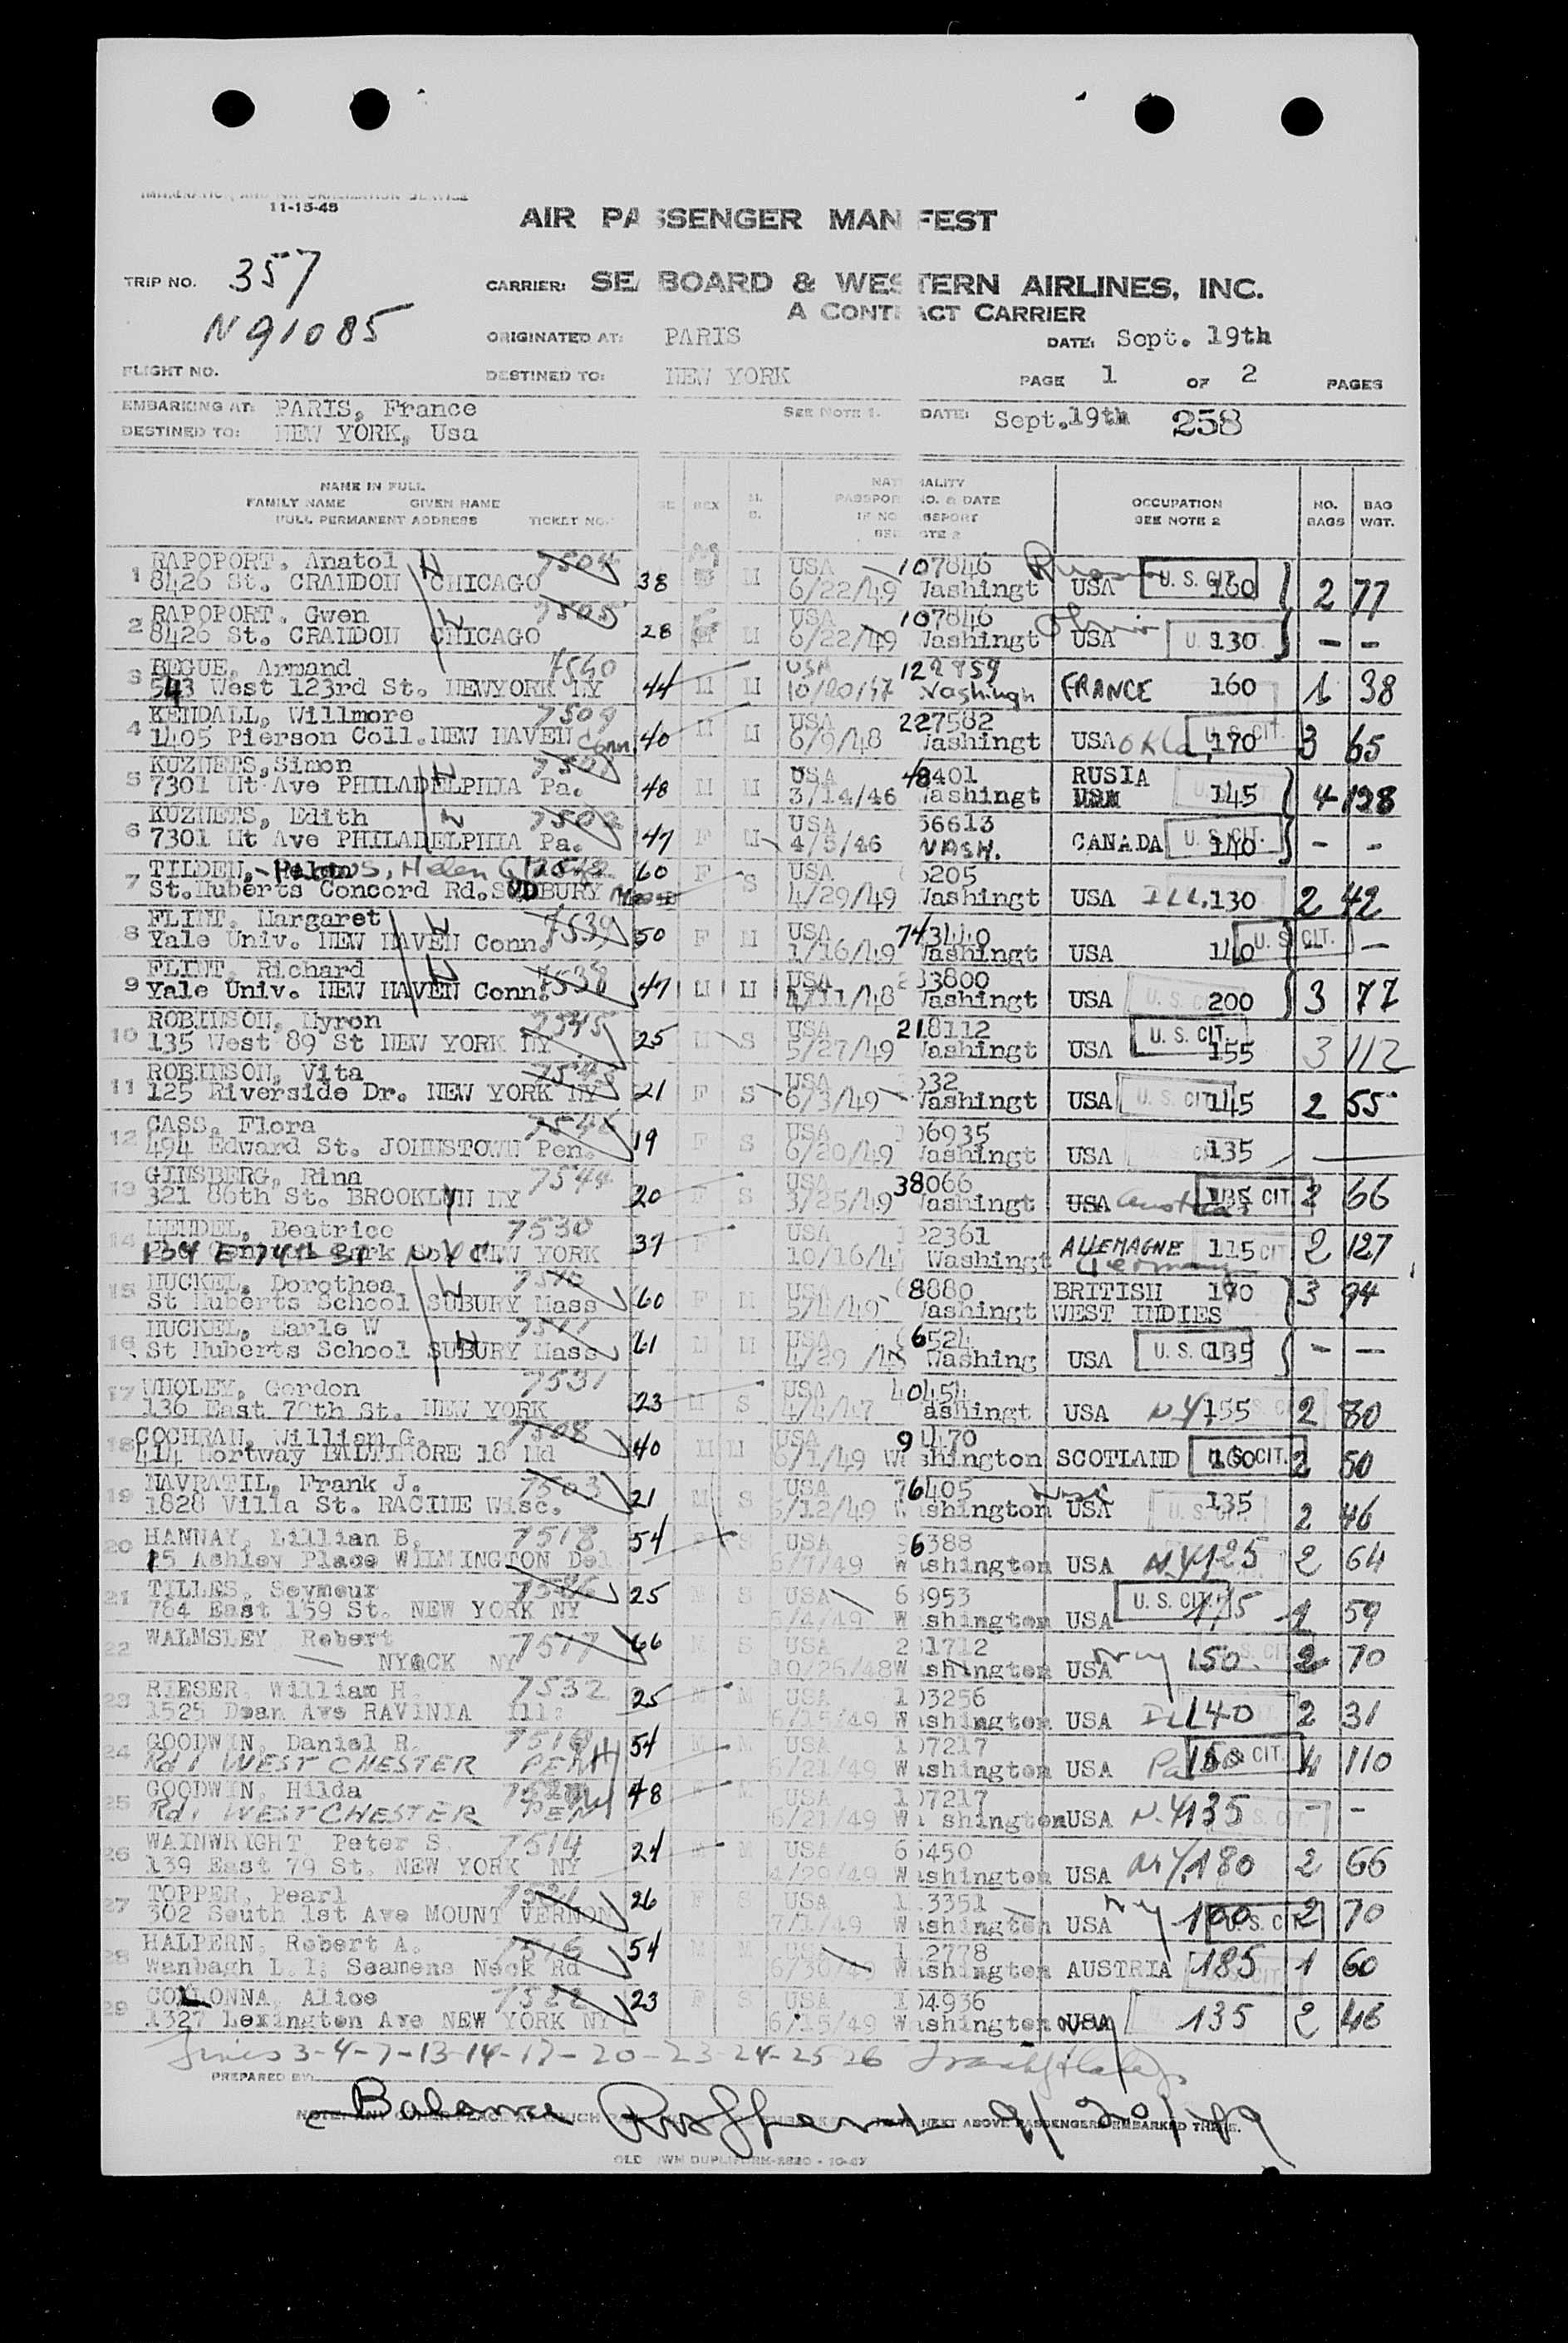 11-15-48
AIR PASSENGER MANIFEST
TRIP NO. 357
CARRIER: SEABOARD & WESTERN AIRLINES, INC.
A CONTRACT CARRIER
N91085
ORIGINATED AT: PARIS DATE: Sept. 19th
FLIGHT NO.
DESTINED TO: NEW YORK PAGE 1 OF 2 PAGES
EMBARKING AT: PARIS, France SEE NOTE 1. DATE: Sept.19th 258
DESTINED TO: NEW YORK, Usa
NAME IN FULL
FAMILY NAME GIVEN NAME
FULL PERMANENT ADDRESS TICKET NO.
SEX
OCCUPATION
SEE NOTE 2
NO. BAGS
BAG WGT.
1 RAPOPORT, Anatol 7504 USA 107846
8426 St. CRANDON CHICAGO 38 M 6/22/49 Washingt USA U. S. CIT. 160 2 77
2 RAPOPORT, Gwen 7505 USA 107846
8426 St. CRANDON CHICAGO 28 M 6/22/49 Washingt USA 130 - -
3 BEGUE, Armand 7540 USA 122859
543 West 123rd St. NEWYORK NY 44 M M 10/20/47 Washingt FRANCE 160 1 38
4 KENDALL, Willmore 7509 USA 227582
1405 Pierson Coll.NEW HAVEN Conn 40 M M 6/9/48 Washingt USA Okla. 170 U. S. CIT. 3 65
5 KUZNETS,Simon 7501 USA 48401 RUSIA
7301 Mt Ave PHILADELPHIA Pa. 48 M M 3/14/46 Washingt USA 145 4 128
6 KUZNETS, Edith 7502 USA 56613
7301 Mt Ave PHILADELPHIA Pa. 47 F M 4/5/46 WASH. CANADA U. S. CIT. 140 - -
7 TILDEN, Helen 60 F S USA 5205
St.Huberts Concord Rd.SUDBURY Mass 4/29/49 Washingt USA ILL. 130 2 42
8 FLINT, Margaret 7539 USA 743440
Yale Univ. NEW HAVEN Conn. 50 F M 1/16/49 Washingt USA 140 U. S. CIT. —
9 FLINT, Richard 7538 USA 33800
Yale Univ. NEW HAVEN Conn. 47 M M 4/11/48 Washingt USA 200 3 77
10 ROBINSON, Myron 7545 USA 218112
135 West 89 St NEW YORK NY 25 M S 5/27/49 Washingt USA U. S. CIT. 155 3 112
11 ROBINSON, Vita USA 532
125 Riverside Dr. NEW YORK NY 21 F S 6/3/49 Washingt USA U. S. CIT. 145 2 55
12 CASS, Flora USA 06935
494 Edward St. JOHNSTOWN Pen. 19 F S 6/20/49 Washingt USA 135 —
13 GINSBERG, Rina 7544 USA 38066
321 86th St. BROOKLYN NY 20 F S 3/25/49 Washingt USA 135 CIT. 2 66
14 MENDEL, Beatrice 7530 USA 22361
134 E 74th St NYC NEW YORK 37 F 10/16/4 Washingt ALLEMAGNE Germany 115 CIT 2 127
15 HUCKEL, Dorothea 7510 USA 68880 BRITISH 170
St Huberts School SUBURY Mass 60 F M 5/4/49 Washingt WEST INDIES 3 94
16 HUCKEL, Earle W 7511 USA 6524
St Huberts School SUBURY Mass 61 M M 4/29 Washing USA U. S. CIT. 135 - —
17 WHOLEY, Gordon 7531 USA 40454
136 East 78th St. NEW YORK 23 M S 4/4/47 ashingt USA N.Y. 155 2 80
18 COCHRAN, William G. 7508 USA 470
414 Nortway BALTIMORE 18 Md 40 M M 6/1/49 Washington SCOTLAND 160 CIT. 2 50
19 NAVRATIL, Frank J. 7503 USA 76405
1828 Villa St. RACINE Wisc. 21 M S 5/12/49 Washington USA 135 2 46
20 HANNAY, Lillian B. 7518 USA 6388
15 Ashley Place WILMINGTON Del 54 F S 6/7/49 Washington USA N.Y. 125 2 64
21 TILLES, Seymour USA 63953
764 East 159 St. NEW YORK NY 25 M S 5/4/49 Washington USA U. S. CIT. 175 1 59
22 WALMSLEY Robert 7517 USA 231712
NYACK NY 66 M S 10/26/48 Washington USA NY 150 2 70
23 RIESER, William H. 7532 USA 103256
1525 Dean Ave RAVINIA Ill: 25 M M 6/15/49 Washington USA ILL 140 2 31
24 GOODWIN, Daniel R. USA 107217
Rd 1 WEST CHESTER PENN 54 M M 6/21/49 Washington USA Pa 150 CIT. 4 110
25 GOODWIN, Hilda USA 107217
Rd 1 WEST CHESTER PENN 48 F M 6/21/49 Washington USA N.Y. 135 - -
26 WAINWRIGHT Peter S. 7514 USA 65450
139 East 79 St. NEW YORK NY 24 M M 4/29/49 Washington USA N.Y. 180 2 66
27 TOPPER, Pearl 7521 USA 3351
302 South 1st Ave MOUNT VERNON 26 F S 7/1/49 Washington USA NY 100 U. S. CIT. 2 70
28 HALPERN, Robert A. 7516 USA 2778
Wanbagh L.I; Seamens Neck Rd 54 M M 6/30/49 Washington AUSTRIA 185 1 60
29 COLONNA, Alice 7522 USA 104936
1327 Lexington Ave NEW YORK NY 23 F S 6/15/49 Washington USA NY 135 2 46
Lines 3-4-7-13-14-17-20-23-24-25-26
PREPARED BY:
Balance 9/20/49